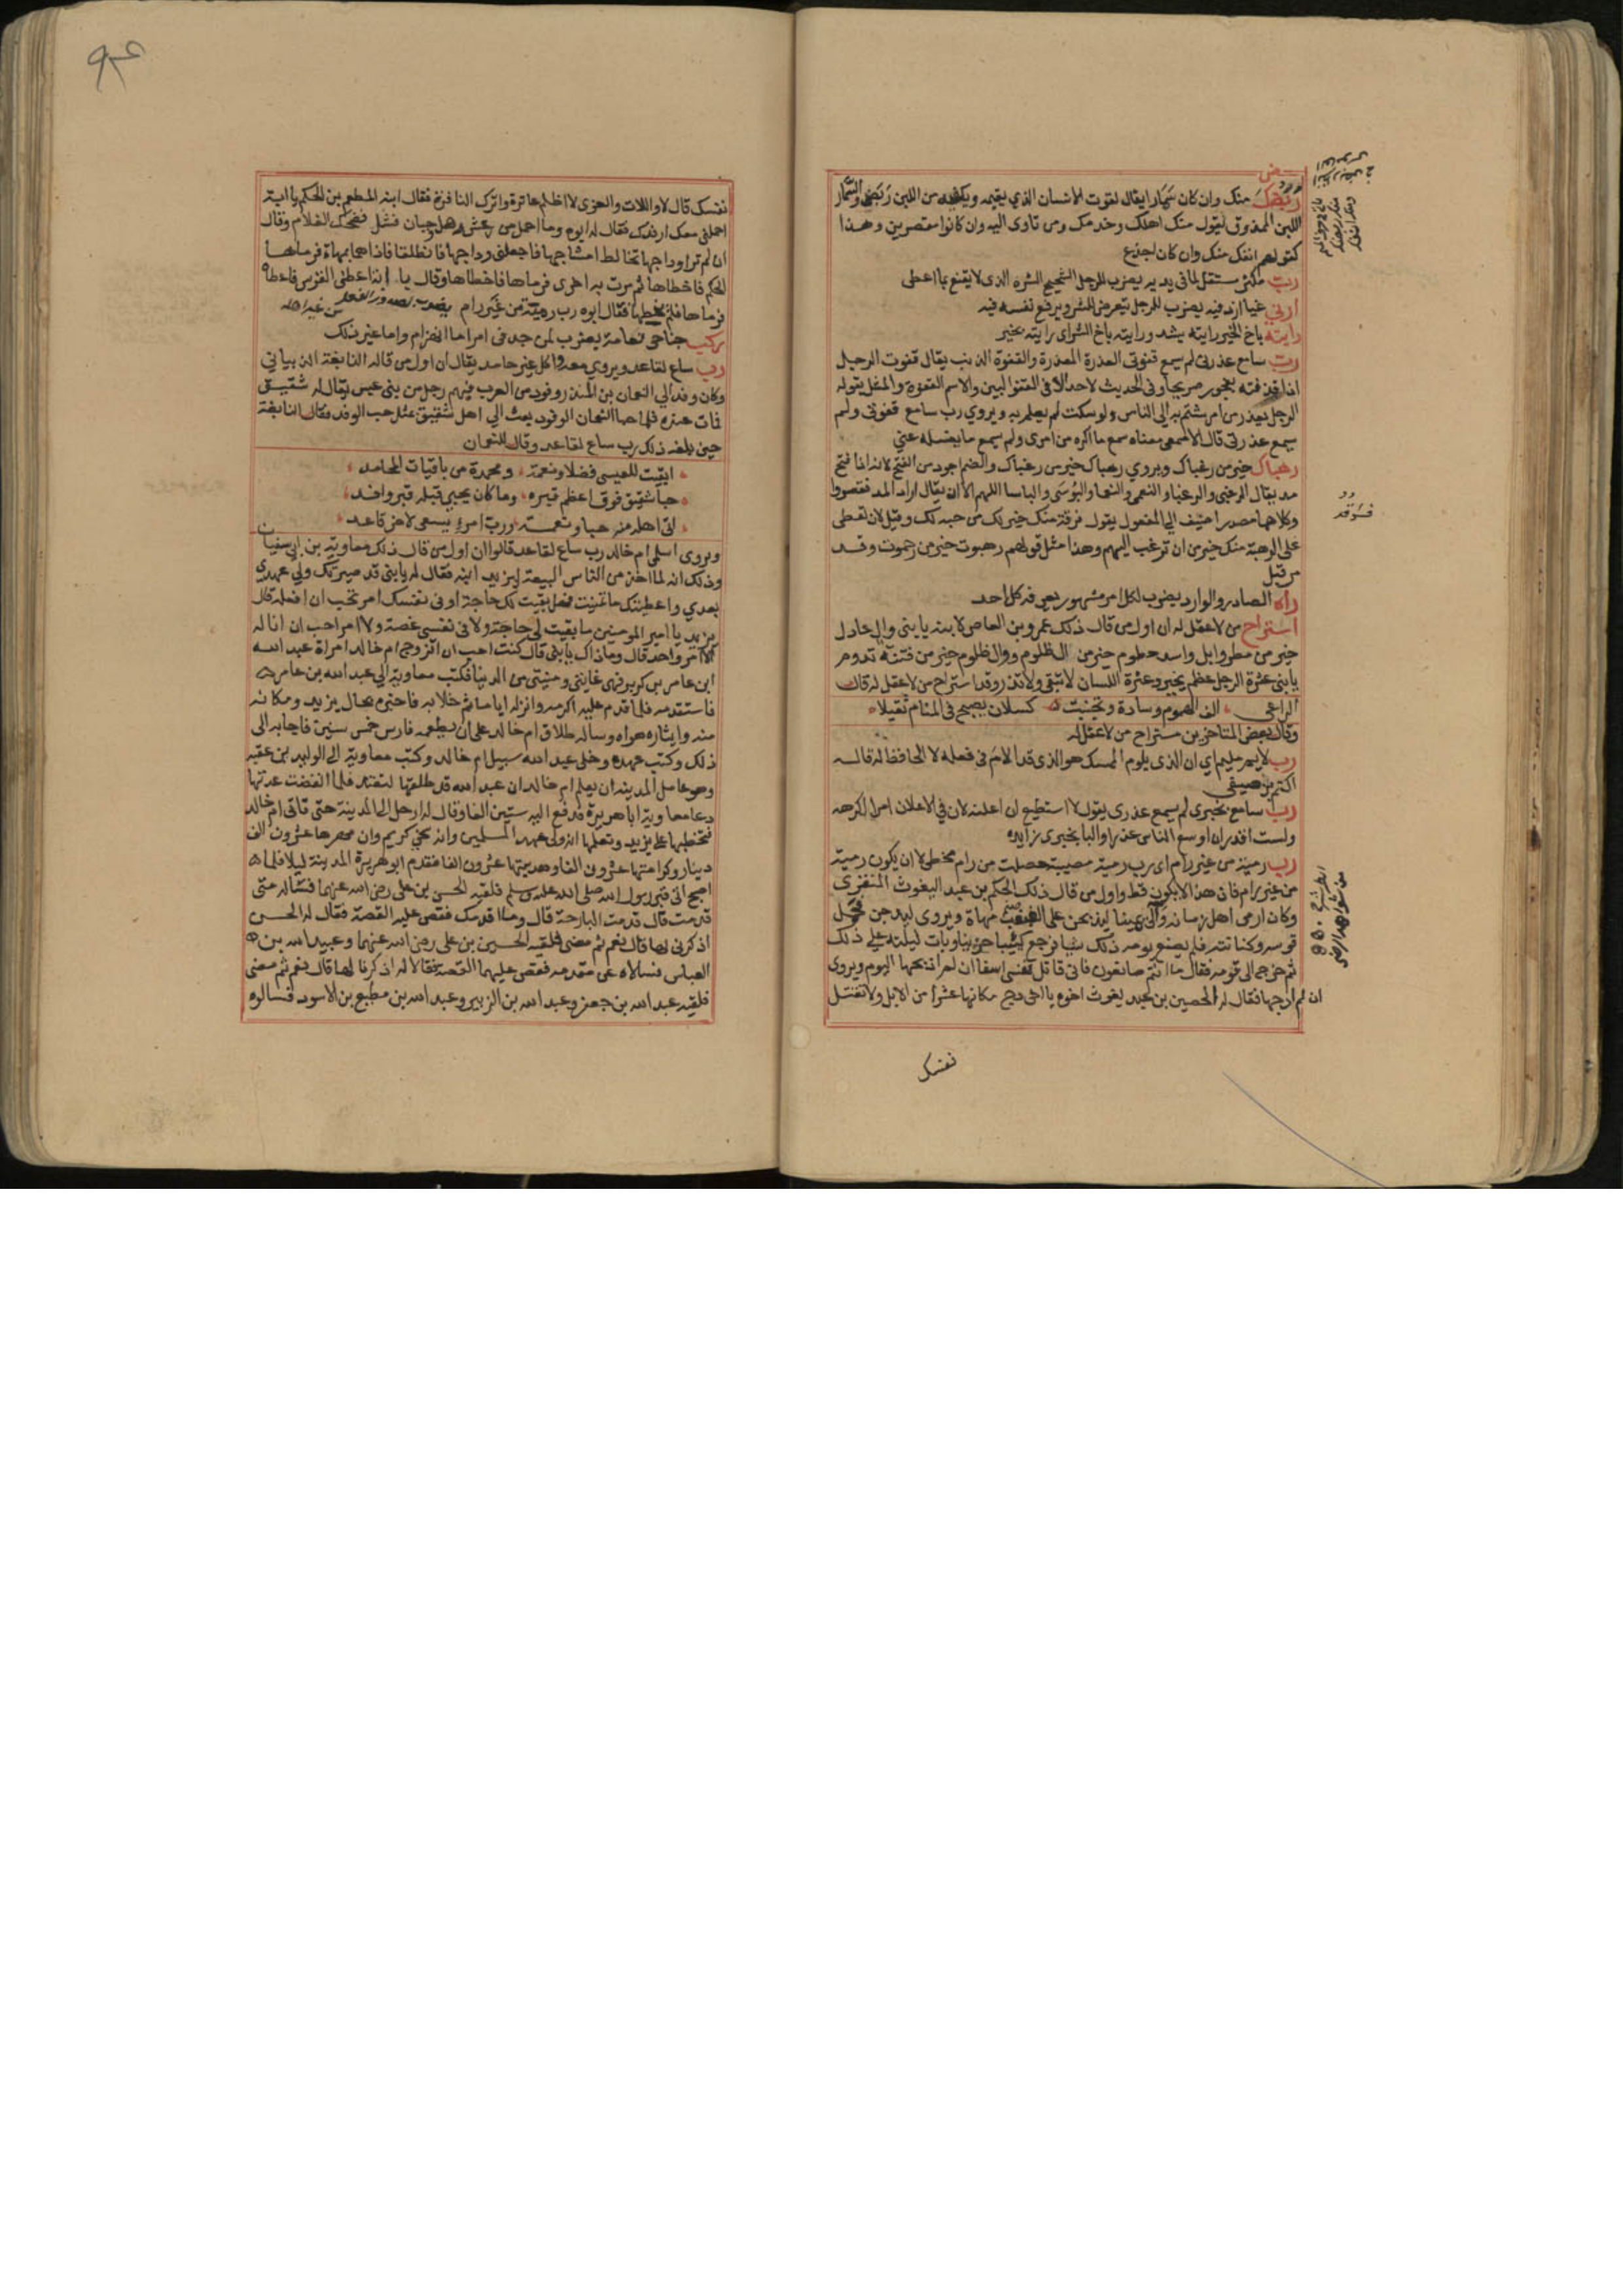 ربضك منك وان كان سمارا يقال لقوت الانسان الذي يقيمه ويكفيه من اللبن ربض والسمار
اللبن الممذوق يقول منك اهلك وخدمك ومن تاوى اليه وان كانوا مقصرين وهذا
كقولهم انفك منك وان كان اجدع
رب مكثر مستقل لما في يديه يضرب للرجل الشحيح الشره الذي لا يقنع بما اعطى
ارني غيا ازد فيه يضرب للرجل يتعرض للشر ويرفع نفسه فيه
رايته باخ الخير رايته بشد ورايته باخ الشر اى رايته بخير
رب سامع عذرتي لم يسمع قفوتي العذرة المعذرة والقفوة الذنب يقال قفوت الرجل
اذا قذفته بفجور صريحا وفي الحديث لا حد الا في القفو البين والاسم القفوة والمثل يقوله
الرجل يعتذر من امر شتم به الى الناس ولو سكت لم يعلم به ويروي رب سامع قفوتي ولم
يسمع عذرتي قال الاصمعى معناه سمع ما اكره من امرى ولم يسمع ما يغسله عني
رهباك خير من رغباك ويروي رهباك خير من رغباك والضم اجود من الفتح لانه اذا فتح
مد يقال الرغبى والرغبا والنعمى والنعما والبؤسى والباسا اللهم الا ان يقال اراد المد فقصروا
وكلاهما مصدر اضيف الى المفعول يقول فرقه منك خير لك من حبه لك وقيل لان تعطى
على الرهبة منك خير من ان ترغب اليهم وهذا مثل قولهم رهبوت خير من رحموت وقد
مر قبل
راه الصادر والوارد يضرب لكل امر مشهور يعرفه كل احد
استراح من لا عقل له ان اول من قال ذلك عمرو بن العاص لابنه يا بنى وال عادل
خير من مطر وابل واسد حطوم خير من وال ظلوم ووال ظلوم خير من فتنة تدوم
يا بنى عثرة الرجل عظم يجبر وعثرة اللسان لا تبقى ولا تذر وقد استراح من لا عقل له قال
الراعى الف الهموم وسادة وتجنبت كسلان يصبح في المنام ثقيلا
وقال بعض المتاخرين مستراح من لا عقل له
رب لايم مليم اي ان الذى يلوم الممسك هو الذى قد الام في فعله لا الحافظ له قاله
اكثم بن صيفى
رب سامع بخبرى لم يسمع عذرى يقول لا استطيع ان اعلنه لان في الاعلان امرا اكرهه
ولست اقدر ان اوسع الناس عذرا والبا بخبرى زايده
رب رمية من غير رام اى رب رمية مصيبة حصلت من رام مخطى لا ان يكون رمية
من غير رام فان هذا لا يكون قط واول من قال ذلك الحكم بن عبد يغوث المنقرى
وكان ارمى اهل زمانه والى يمينا ليذبحن على الغبغب مهاة ويروى ليدجن فحمل
قوسه وكنانته فلم يصنع يومه ذلك شيا فرجع كئيبا حزينا وبات ليلته على ذلك
ثم خرج الى قومه فقال ما انتم صانعون فانى قاتل نفسى اسفا ان لم اذبحها اليوم ويروى
ان لم ادجها فقال له الحصين بن عبد يغوث اخوه يا اخى دج مكانها عشرا من الابل ولا تقتل
نفسك
نفسك قال لا واللات والعزى لا اظلم عاترة واترك النافرة فقال ابنه المطعم بن الحكم يا ابة
احملني معك ارفدك فقال له ابوه وما احمل من رعش وهل جبان فشل فضحك الغلام وقال
ان لم تر اوداجها تخالط امشاجها فاجعلني وداجها فانطلقا فاذا هما بمهاة فرماها
الحكم فاخطاها ثم مرت به اخرى فرماها فاخطاها وقال يا ابة اعطنى القوس فاعطاه
فرماها فلم يخطها فقال ابوه رب رمية من غير رام يضرب لصدور الفعل من غير اهله
ركب جناحى نعامة يضرب لمن جد في امر اما انهزام واما غير ذلك
رب ساع لقاعد ويروي معه واكل غير حامد يقال ان اول من قاله النابغة الذبياني
وكان وفد الى النعمان بن المنذر وفود من العرب فيهم رجل من بنى عبس يقال له شقيق
فمات عنده فلما حبا النعمان الوفود بعث الى اهل شقيق بمثل حب الوفد فقال النابغة
حين بلغه ذلك رب ساع لقاعد وقال للنعمان
ابقيت للعبسى فضلا ونعمة ومحمدة من باقيات المحامد
حبا شقيق فوق اعظم قبره وما كان يحبى قبله قبر وافد
اتى اهله منه حبا ونعمة ورب امرء يسعى لاخر قاعد
ويروى اسلمى ام خالد رب ساع لقاعد قالوا ان اول من قال ذلك معاوية بن ابى سفيان
وذلك انه لما اخذ من الناس البيعة ليزيد ابنه فقال له يا بنى قد صيرتك ولي عهدى
بعدي واعطيتك ما تمنيت فهل بقيت لك حاجة او في نفسك امر تحب ان افعله قال
يزيد يا امير المومنين ما بقيت لي حاجة ولا في نفسى غصة ولا امر احب ان اناله
الا امر واحد قال وما ذاك يا بنى قال كنت احب ان اتزوج ام خالد امراة عبد الله
ابن عامر بن كريز فهى غايتى ومنيتى من الدنيا فكتب معاوية الى عبد الله بن عامر
فاستقدمه فلما قدم عليه اكرمه وانزله اياما ثم خلا به فاخبره بحال يزيد ومكانه
منه وايثاره هواه وساله طلاق ام خالد على ان يطعمه فارس خمس سنين فاجابه الى
ذلك وكتب عهده وخلى عبد الله سبيل ام خالد وكتب معاوية الى الوليد بن عقبه
وهو عامل المدينه ان يعلم ام خالد ان عبد الله قد طلقها لتعتد فلما انقضت عدتها
دعا معاوية ابا هريرة فدفع اليه ستين الفا وقال له ارحل الى المدينة حتى تاتى ام خالد
فتخطبها على يزيد وتعلمها انه ولى عهد المسلمين وانه سخى كريم وان مهرها عشرون الف
دينار وكرامتها عشرون الفا وهديتها عشرون الفا فقدم ابو هريرة المدينة ليلا فلما
اصبح اتى قبر رسول الله صلى الله عليه وسلم فلقيه الحسن بن على رضى الله عنهما فساله متى
قدمت قال قدمت البارحة قال وما اقدمك فقص عليه القصة فقال له الحسن
اذكرنى لها قال نعم ثم مضى فلقيه الحسين بن على رضى الله عنهما وعبيد الله بن
العباس فسالاه عن مقدمه فقص عليهما القصة فقالا له اذكرنا لها قال نعم ثم مضى
فلقيه عبد الله بن جعفر وعبد الله بن الزبير وعبد الله بن مطيع بن الاسود فسالوه